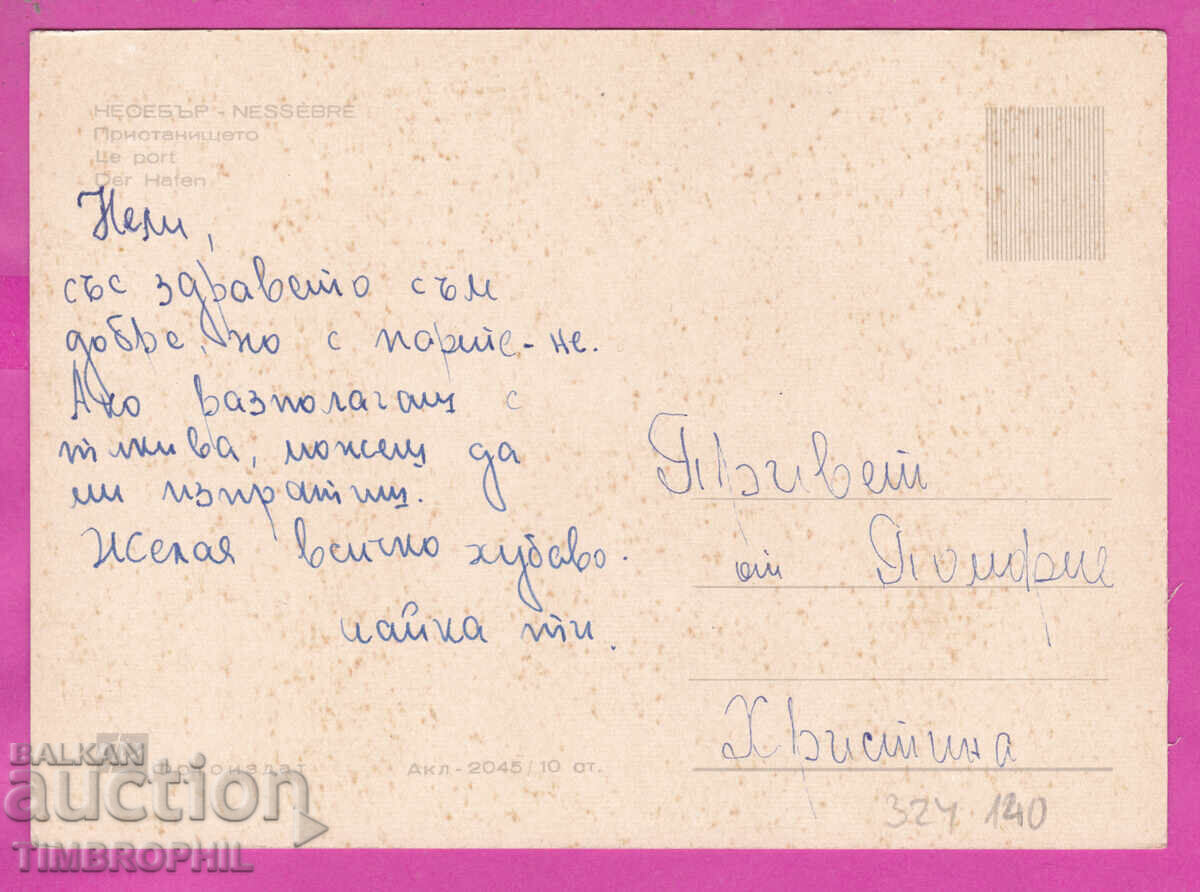 НЕСЕБЪР - NESSÈBRE
Пристанището
Le port
Der Hafen
Нели,
със здравето съм
добре, но с парите-не.
Ако разполагаш с
можеш да
ми изпратиш.
Желая всичко хубаво.
майка ти.
Привет
от Поморие
Християна
Фотоиздат Акл-2045/10 ст.
324 140
BALKAN
auction
TIMBROPHIL